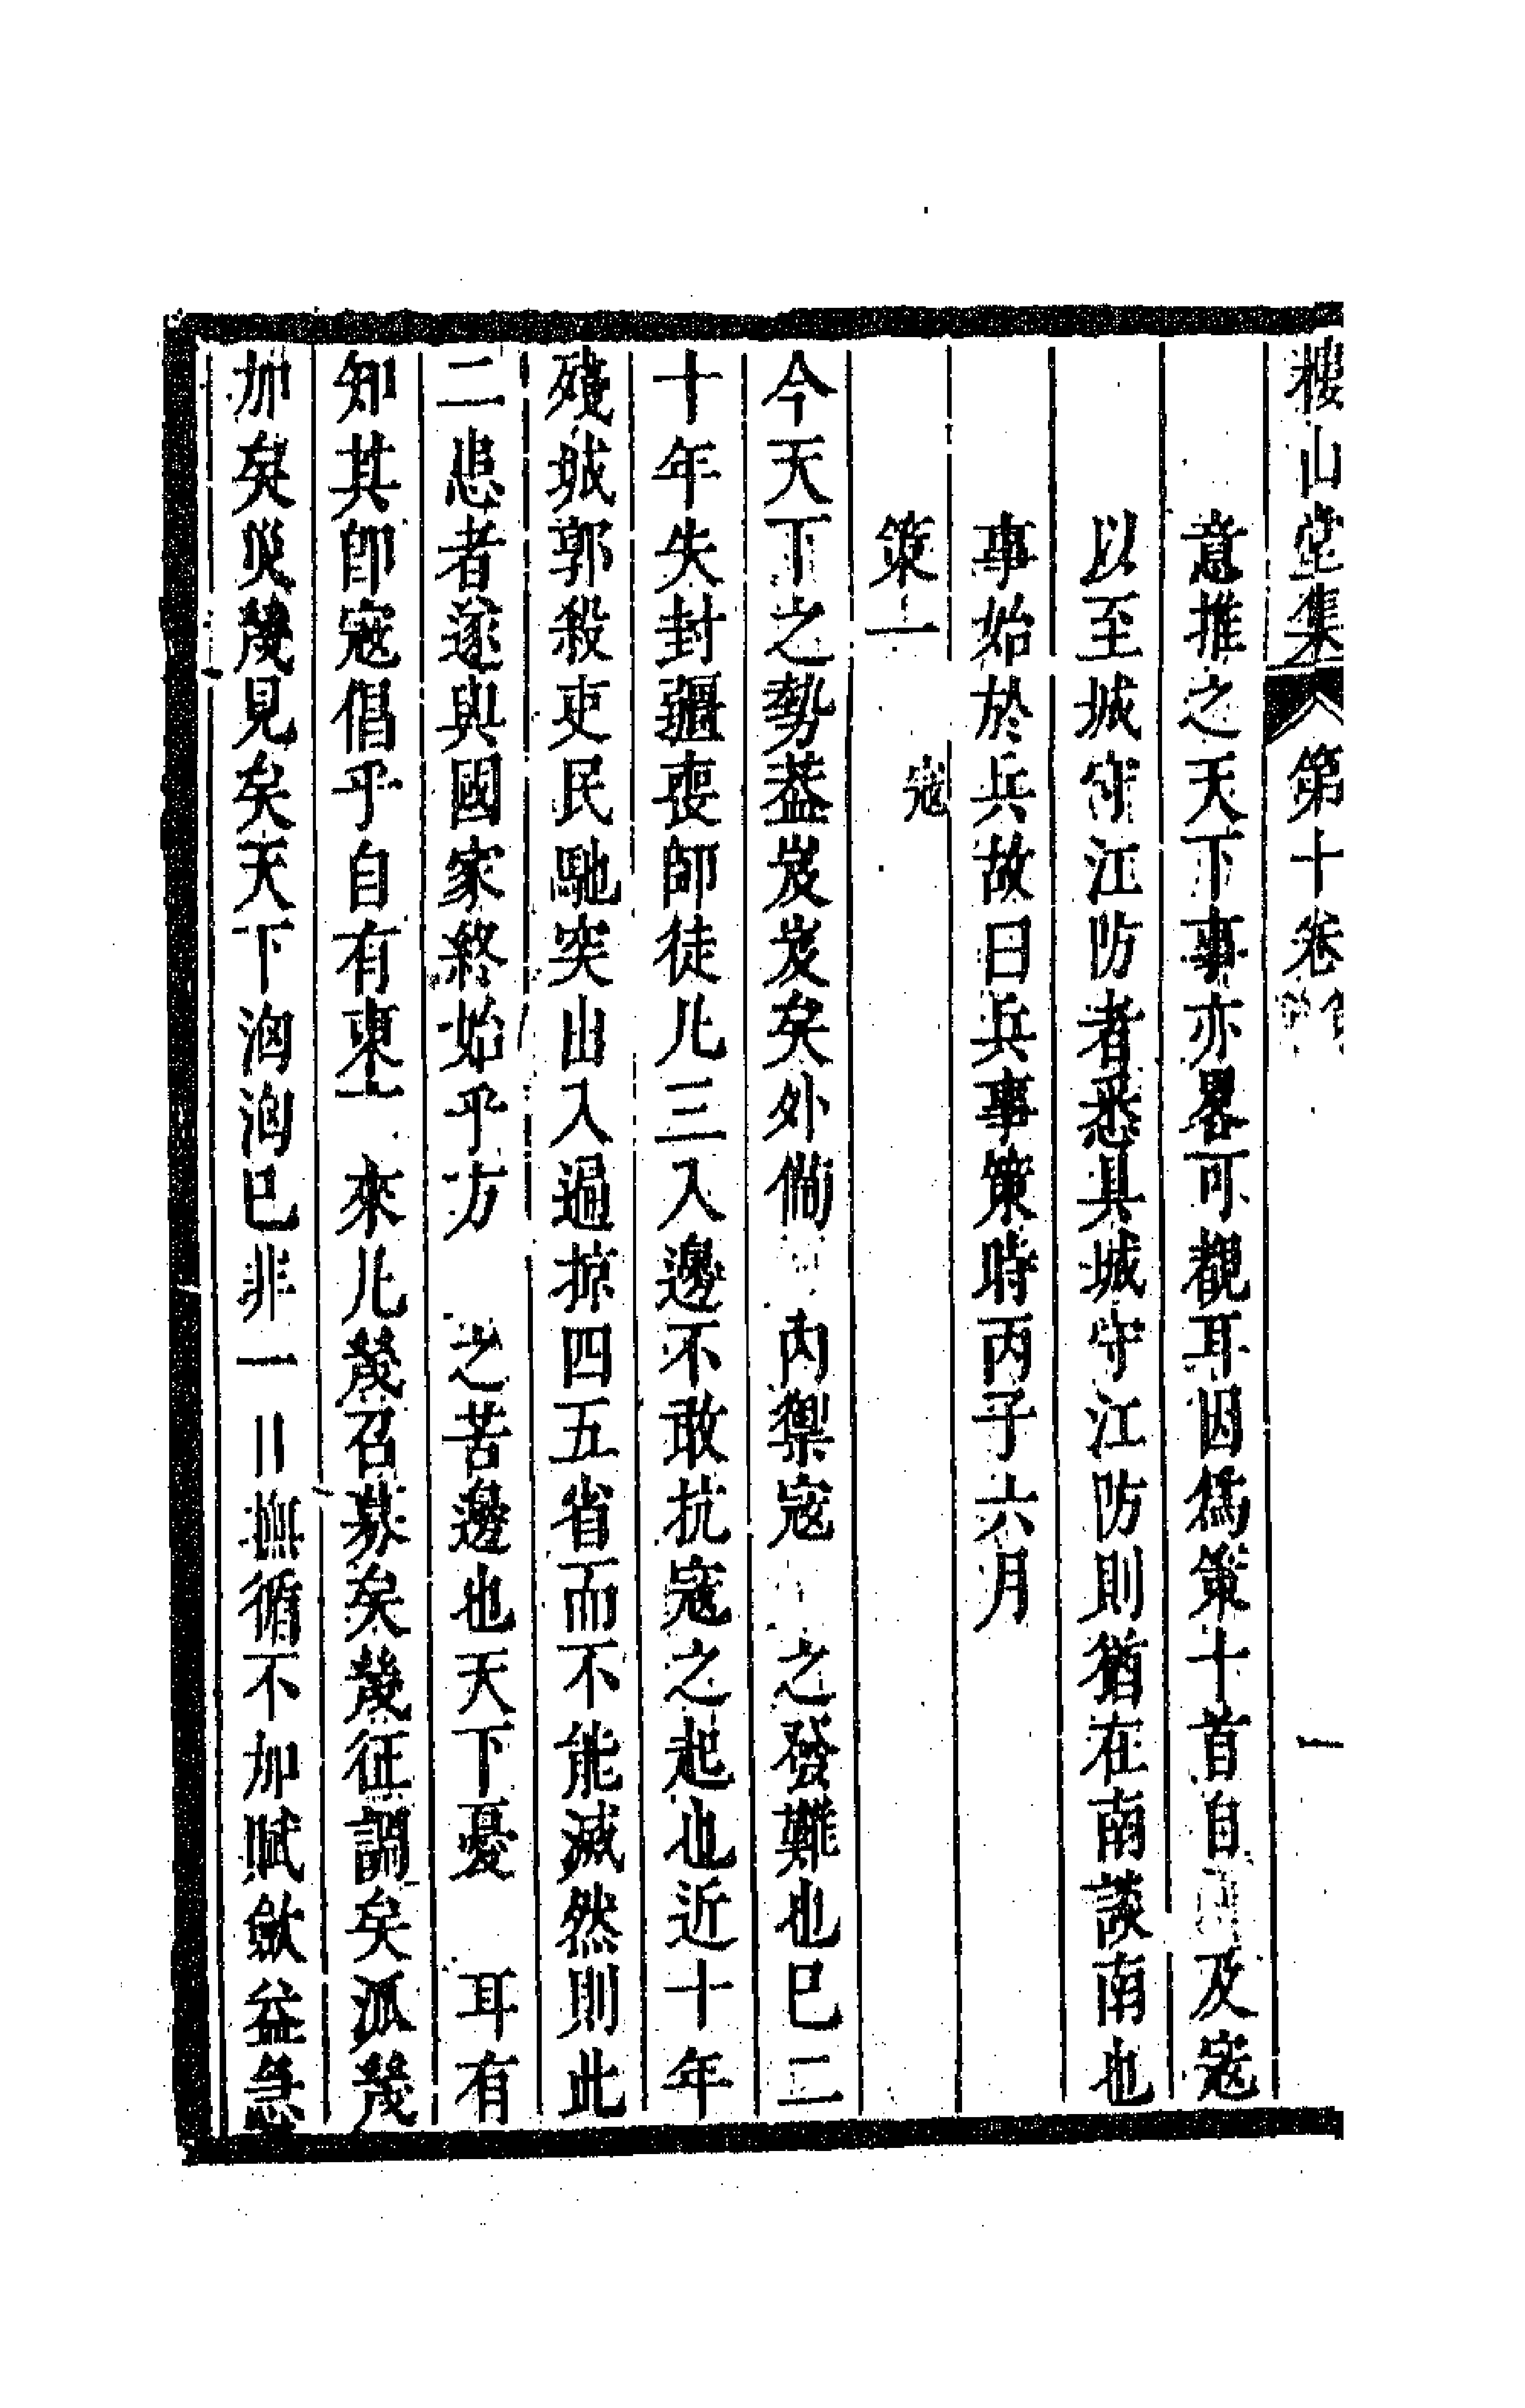 樓山堂集 第十卷 一
意推之天下事亦畧可觀耳因爲策十首自 及寇
以至城守江防者悉具城守江防則猶在南談南也
事始於兵故曰兵事策時丙子六月
策一 寇
今天下之勢葢岌岌矣外備 內禦寇 之發難也巳二
十年失封疆喪師徒凡三入邊不敢抗寇之起也近十年
殘城郭殺吏民馳突出入遍掠四五省而不能滅然則此
二患者遂與國家終始乎方 之苦邊也天下憂 耳有
知其卽寇倡乎自有東 來凡幾召募矣幾征調矣派幾
加矣災幾見矣天下洶洶巳非一日撫循不加賦斂益急